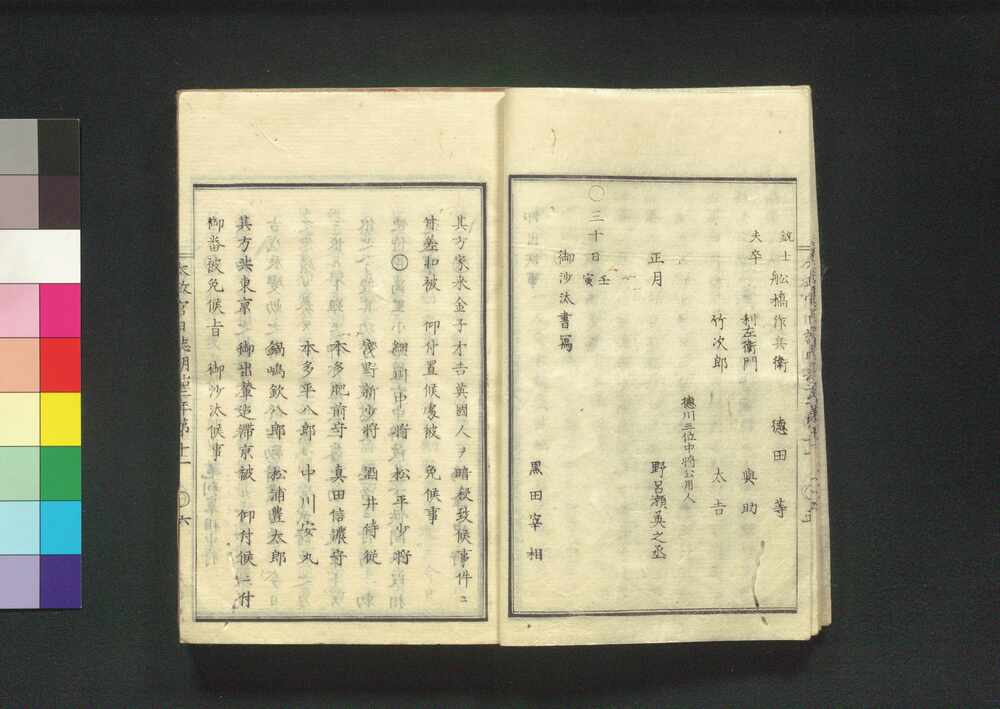 銃士 舩橋作兵衛 德田等
夫卒 利左衞門 與助
竹次郎 太吉
德川三位中將公用人
正月 野呂瀬英之丞
○三十日壬寅
御沙汰書寫
黒田宰相
其方家來金子才吉英國人ヲ暗殺致候事件ニ
付差扣被 仰付置候處被 免候事
細川中將 松平少將
酒井侍從
本多肥前守 真田信濃守
本多平八郎 中川安丸
鍋嶋欽八郎 松浦豊太郎
其方共東京 御出輦迄滞京被 仰付候ニ付
御番被免候旨 御沙汰候事
太政官日誌明治二年第十一 ○六